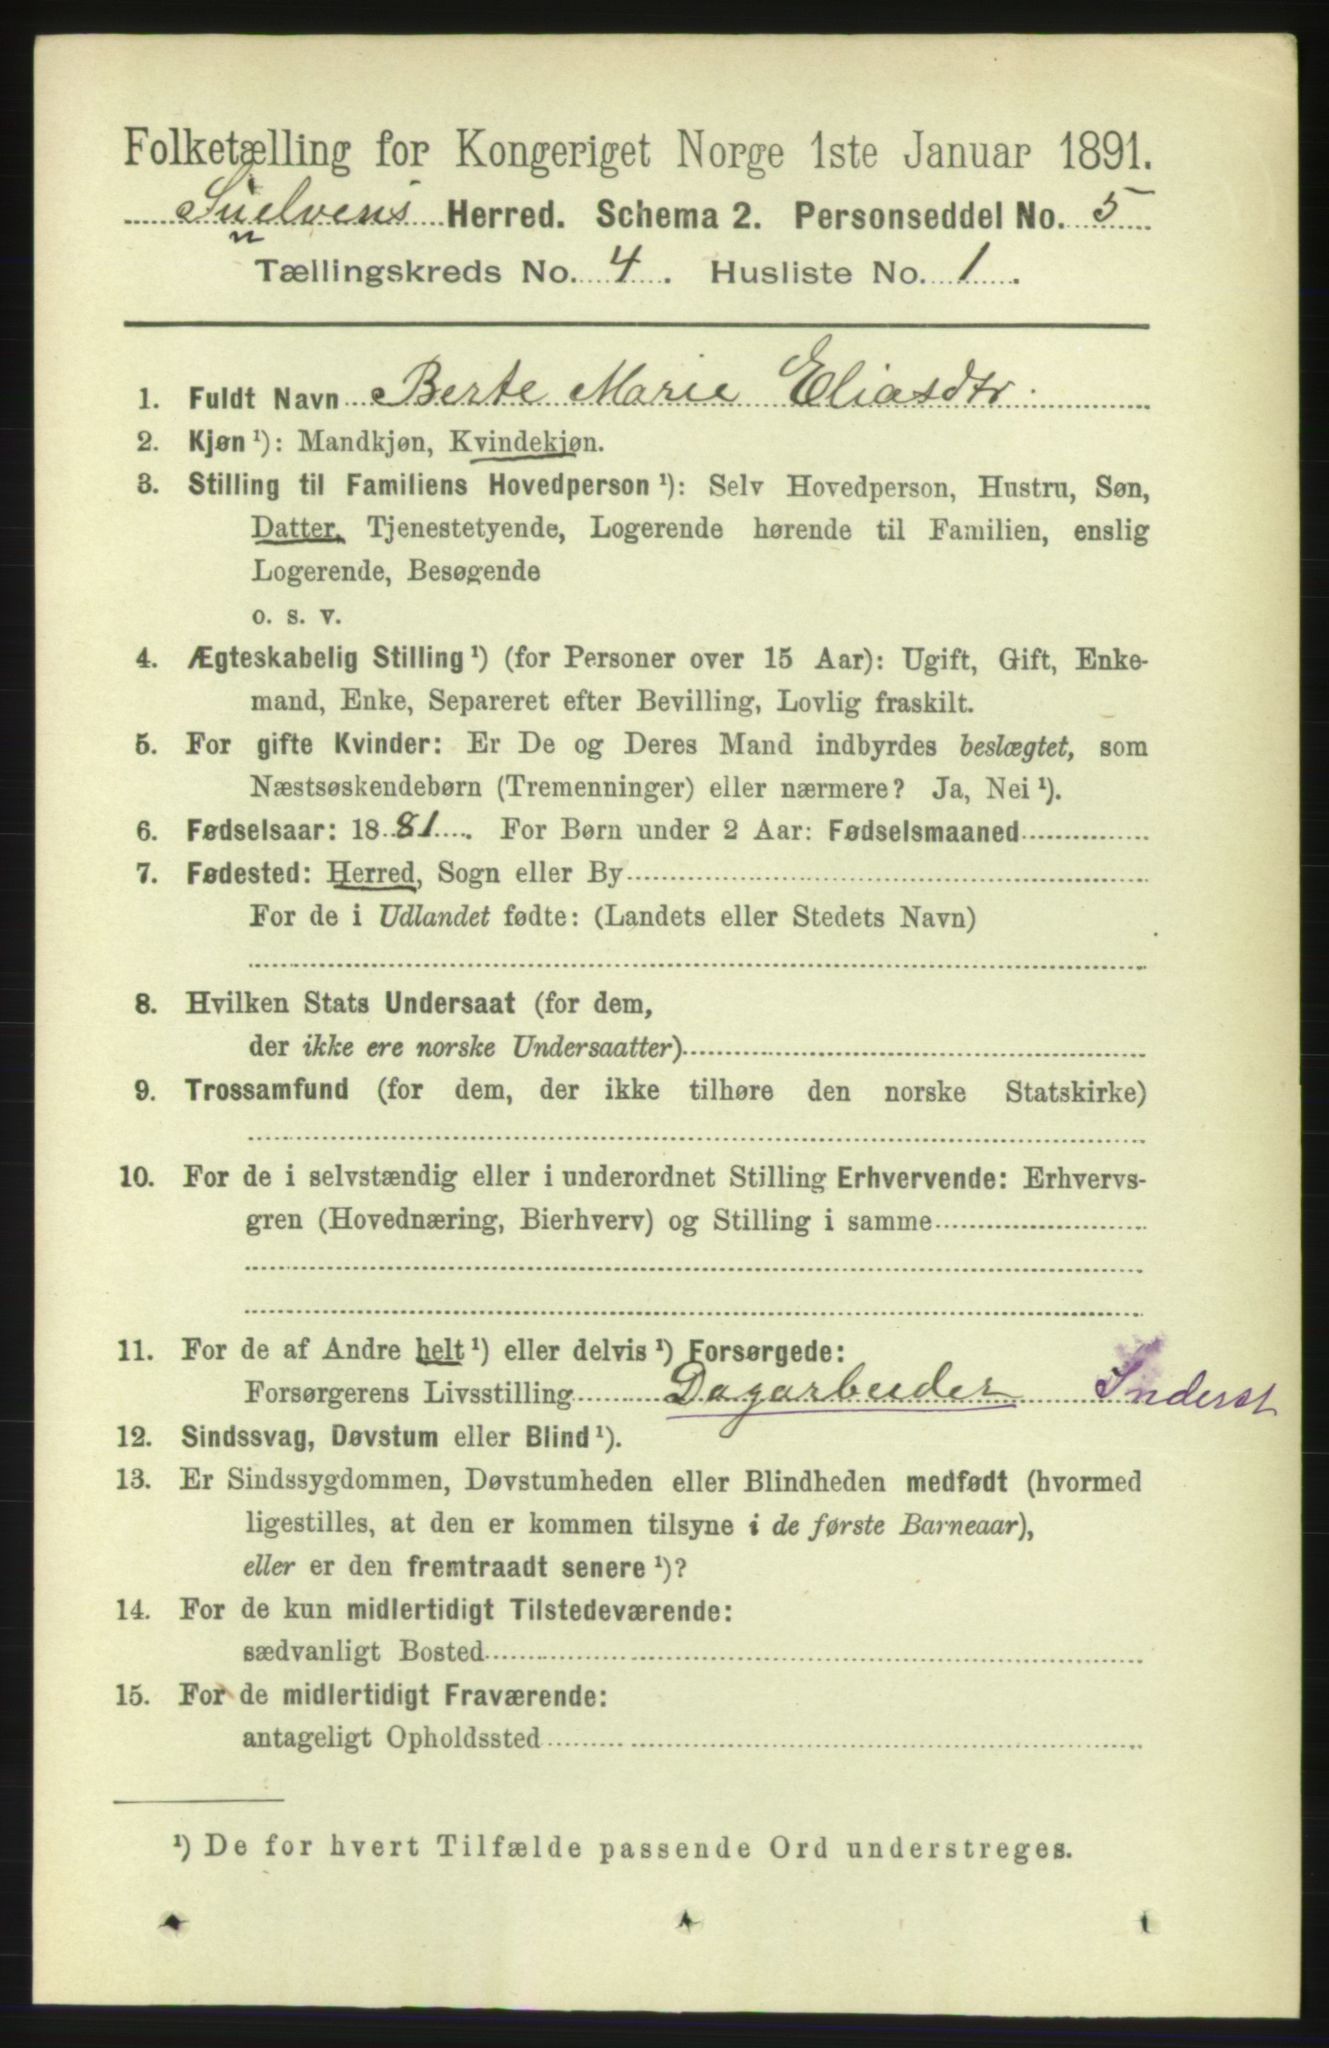 Folketælling for Kongeriget Norge 1ste Januar 1891.
Sunelvens Herred. Schema 2. Personseddel No. 5
Tællingskreds No. 4. Husliste No. 1.
1. Fuldt Navn Berte Marie Eliasdtr.
2. Kjøn ¹): Mandkjøn, Kvindekjøn.
3. Stilling til Familiens Hovedperson ¹): Selv Hovedperson, Hustru, Søn,
Datter, Tjenestetyende, Logerende hørende til Familien, enslig
Logerende, Besøgende
o. s. v.
4. Ægteskabelig Stilling ¹) (for Personer over 15 Aar): Ugift, Gift, Enke-
mand, Enke, Separeret efter Bevilling, Lovlig fraskilt.
5. For gifte Kvinder: Er De og Deres Mand indbyrdes beslægtet, som
Næstsøskendebørn (Tremenninger) eller nærmere? Ja, Nei ¹).
6. Fødselsaar: 1881. For Børn under 2 Aar: Fødselsmaaned
7. Fødested: Herred, Sogn eller By
For de i Udlandet fødte: (Landets eller Stedets Navn)
8. Hvilken Stats Undersaat (for dem,
der ikke ere norske Undersaatter)
9. Trossamfund (for dem, der ikke tilhøre den norske Statskirke)
10. For de i selvstændig eller i underordnet Stilling Erhvervende: Erhvervs-
gren (Hovednæring, Bierhverv) og Stilling i samme
11. For de af Andre helt ¹) eller delvis ¹) Forsørgede:
Forsørgerens Livsstilling Dagarbeider Inderst
12. Sindssvag, Døvstum eller Blind ¹).
13. Er Sindssygdommen, Døvstumheden eller Blindheden medfødt (hvormed
ligestilles, at den er kommen tilsyne i de første Barneaar),
eller er den fremtraadt senere ¹)?
14. For de kun midlertidigt Tilstedeværende:
sædvanligt Bosted
15. For de midlertidigt Fraværende:
antageligt Opholdssted
¹) De for hvert Tilfælde passende Ord understreges.